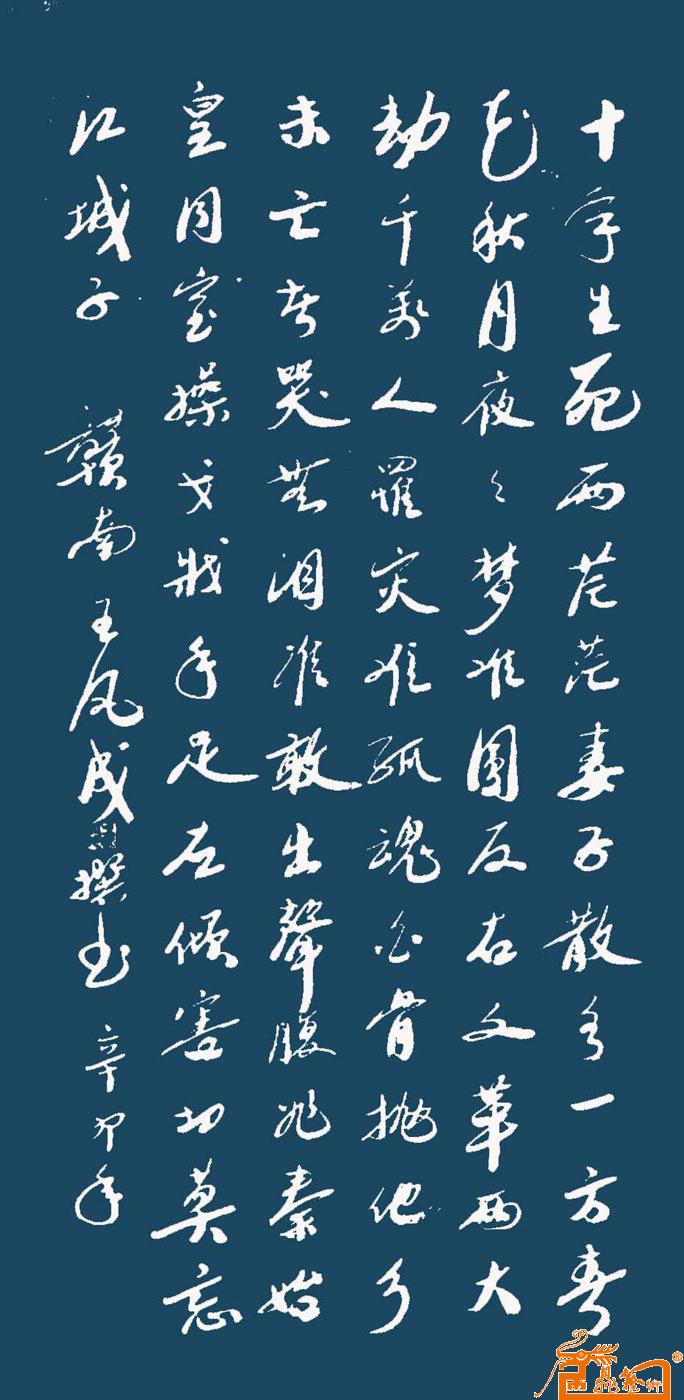 十年生死两茫茫妻子散各一方春
花秋月夜々梦难圆反右文革两大
劫千万人罹灾难孤魂白骨抛他乡
未亡者哭无泪准敢出声腹非秦始
皇同室操戈戕手足左倾害切莫忘
江城子 赣南王凤成撰书 辛卯年